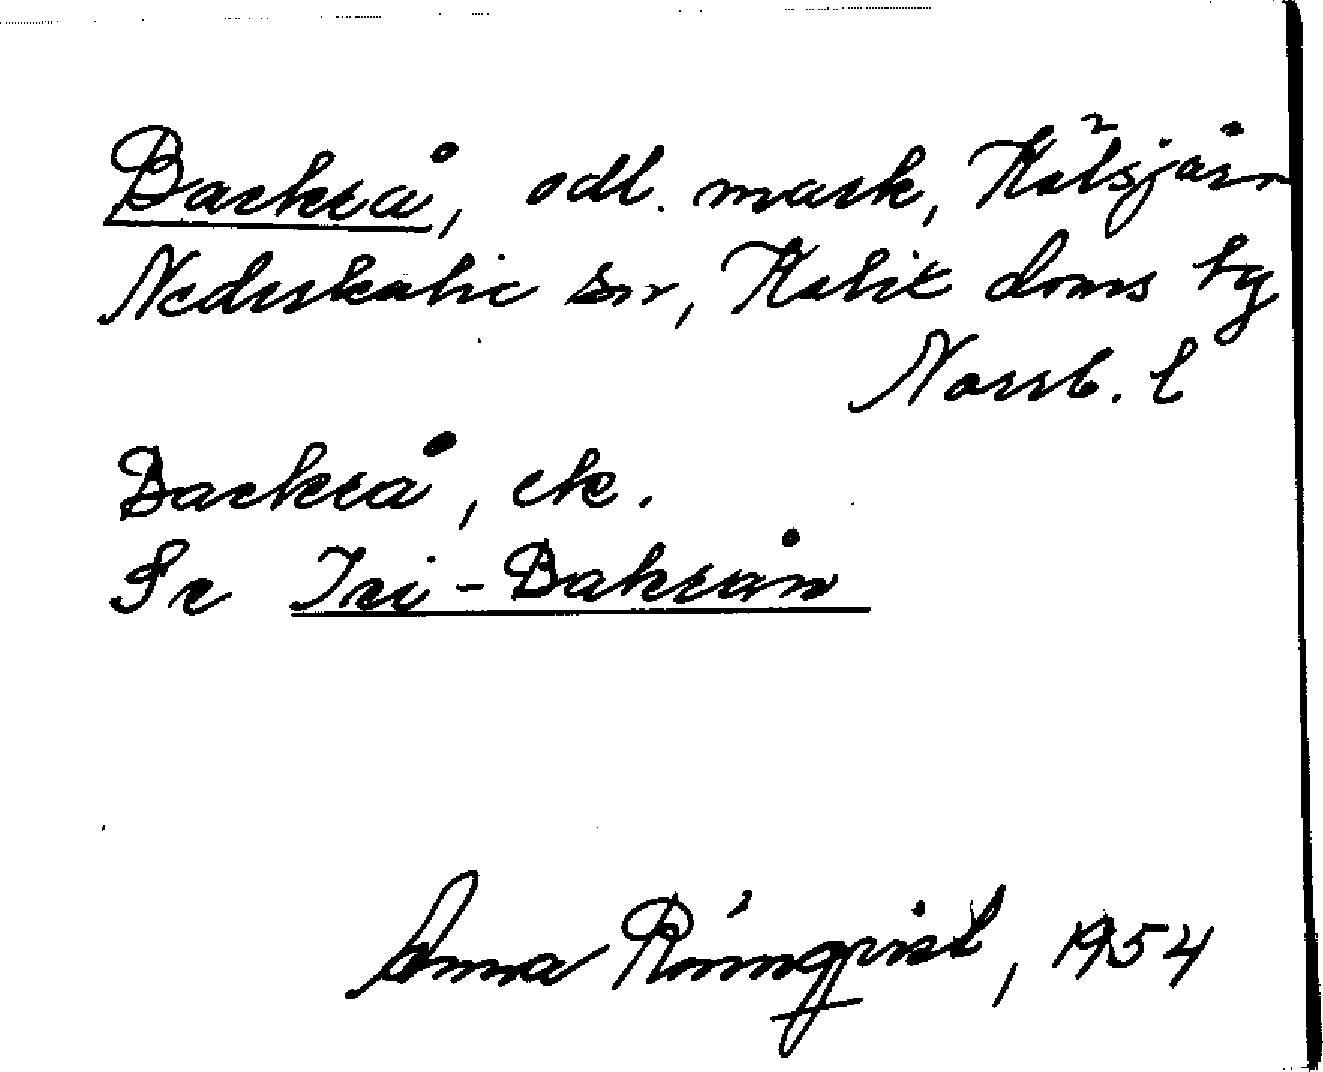 Backeå, odl. mark, Kälsjärv
Nederkalix sn, Kalix doms tg
Norrb. l
Backeå, ek.
Se Isi-Bakeån
Anna Rönnqvist, 1954